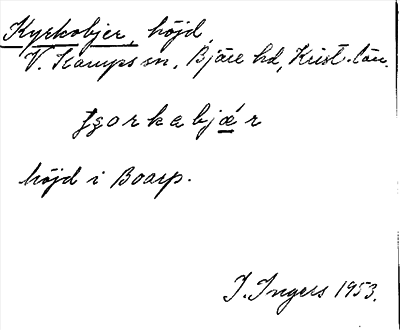 Kyrkobjer, höjd,
V. Karups sn, Bjäre hd, Krist. län.
höjd i Boarp.
I. Ingers 1953.